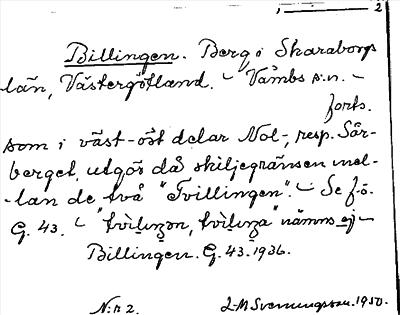 1 2
Billingen. Berg i Skaraborgs
län, Västergötland. – Vämbs s:n. –
forts.
som i väst-öst delar Nol-, resp. Sör-
berget, utgör då skiljegränsen mel-
-lan de två "Tvillingen". – Se f.ö.
G. 43. – "tvìlıŋən, tvìlıŋa" nämns ej –
Billingen. G. 43. 1936.
N:r 2. J-M Svenungsson. 1950.